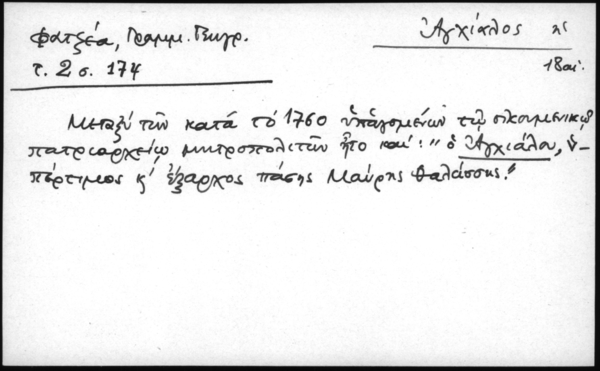 Φατζέα, Γραμμ. Γεωγρ.
τ. 2 σ. 174
Ἀγχίαλος
18 αἰ.
Μεταξύ τῶν κατά τό 1760 ὑπαγομένων τῷ οἰκουμενικῷ
πατριαρχείῳ μητροπολιτῶν ἦτο καί: "ὁ Ἀγχιάλου, ὑ-
πέρτιμος κ' ἔξαρχος πάσης Μαύρης θαλάσσης."